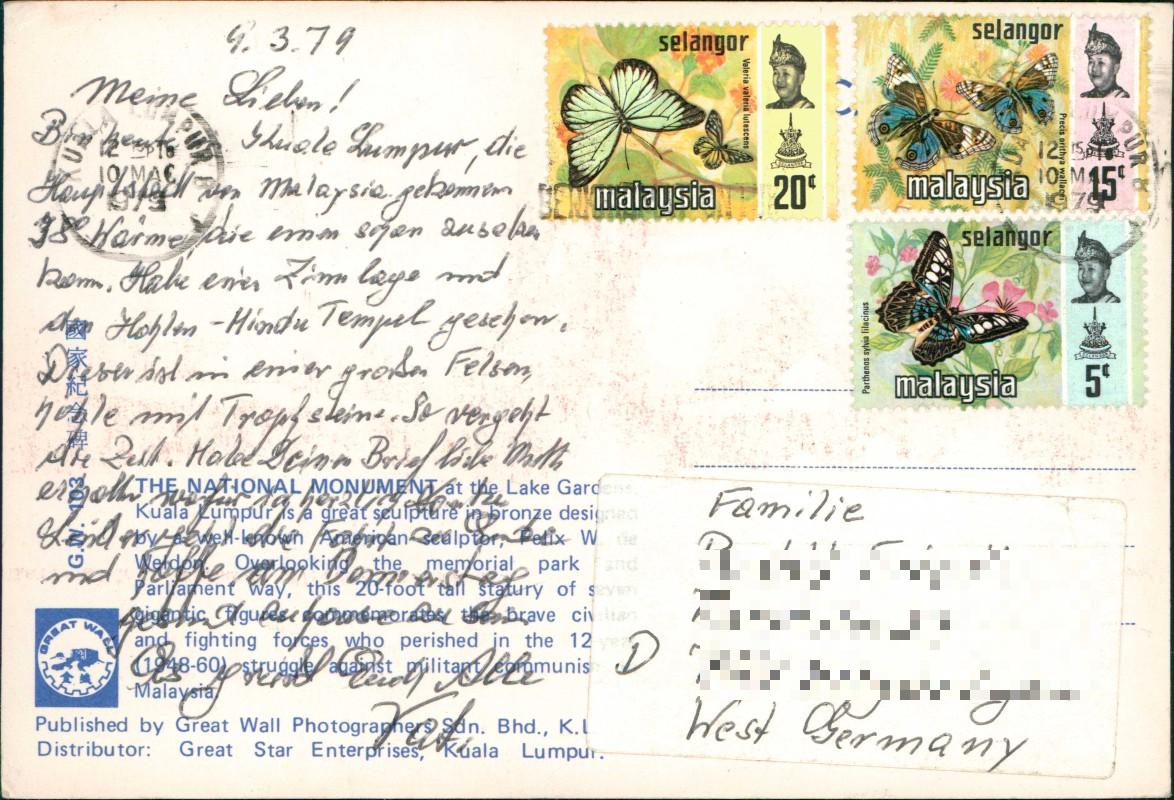 9.3.79
Meine Lieben!
Bin heute Kuala Lumpur, die
Hauptstadt von Malaysia gekommen
38° Wärme die einen schon zusetzen
kann. Habe eine Zinnlage und
den Hohlen-Hindu Tempel gesehen.
Dieser ist in einer großen Felsen,
höhle mit Tropfsteine. So vergeht
die Zeit. Habe Deinen Brief liebe
erhalten wofür ich herzlich danke
Leider geht die Fahrt zu Ende
und hoffe am Donnerstag
gesund anzukommen
Es grüßt Euch Alle
Vati
selangor
Valeria valeria lutescens
malaysia
20¢
selangor
Precis orithya wallacei
malaysia
15¢
selangor
Parthenos sylvia lilacinus
malaysia
5¢
SELANGOR
KUALA LUMPUR
10 MAC
1979
KUALA LUMPUR
12
10 M
1979
國家紀念碑
G.W. 103
THE NATIONAL MONUMENT at the Lake Gardens,
Kuala Lumpur is a great sculpture in bronze designed
by a well-known American sculptor, Felix W. de
Weldon. Overlooking the memorial park and
Parliament way, this 20-foot tall statury of seven
gigantic figures commemorates the brave civilian
and fighting forces who perished in the 12 year
(1948-60) struggle against militant communis
Malaysia.
GREAT WALL
長城
Published by Great Wall Photographers Sdn. Bhd., K.L
Distributor: Great Star Enterprises, Kuala Lumpur.
Familie
D
West Germany